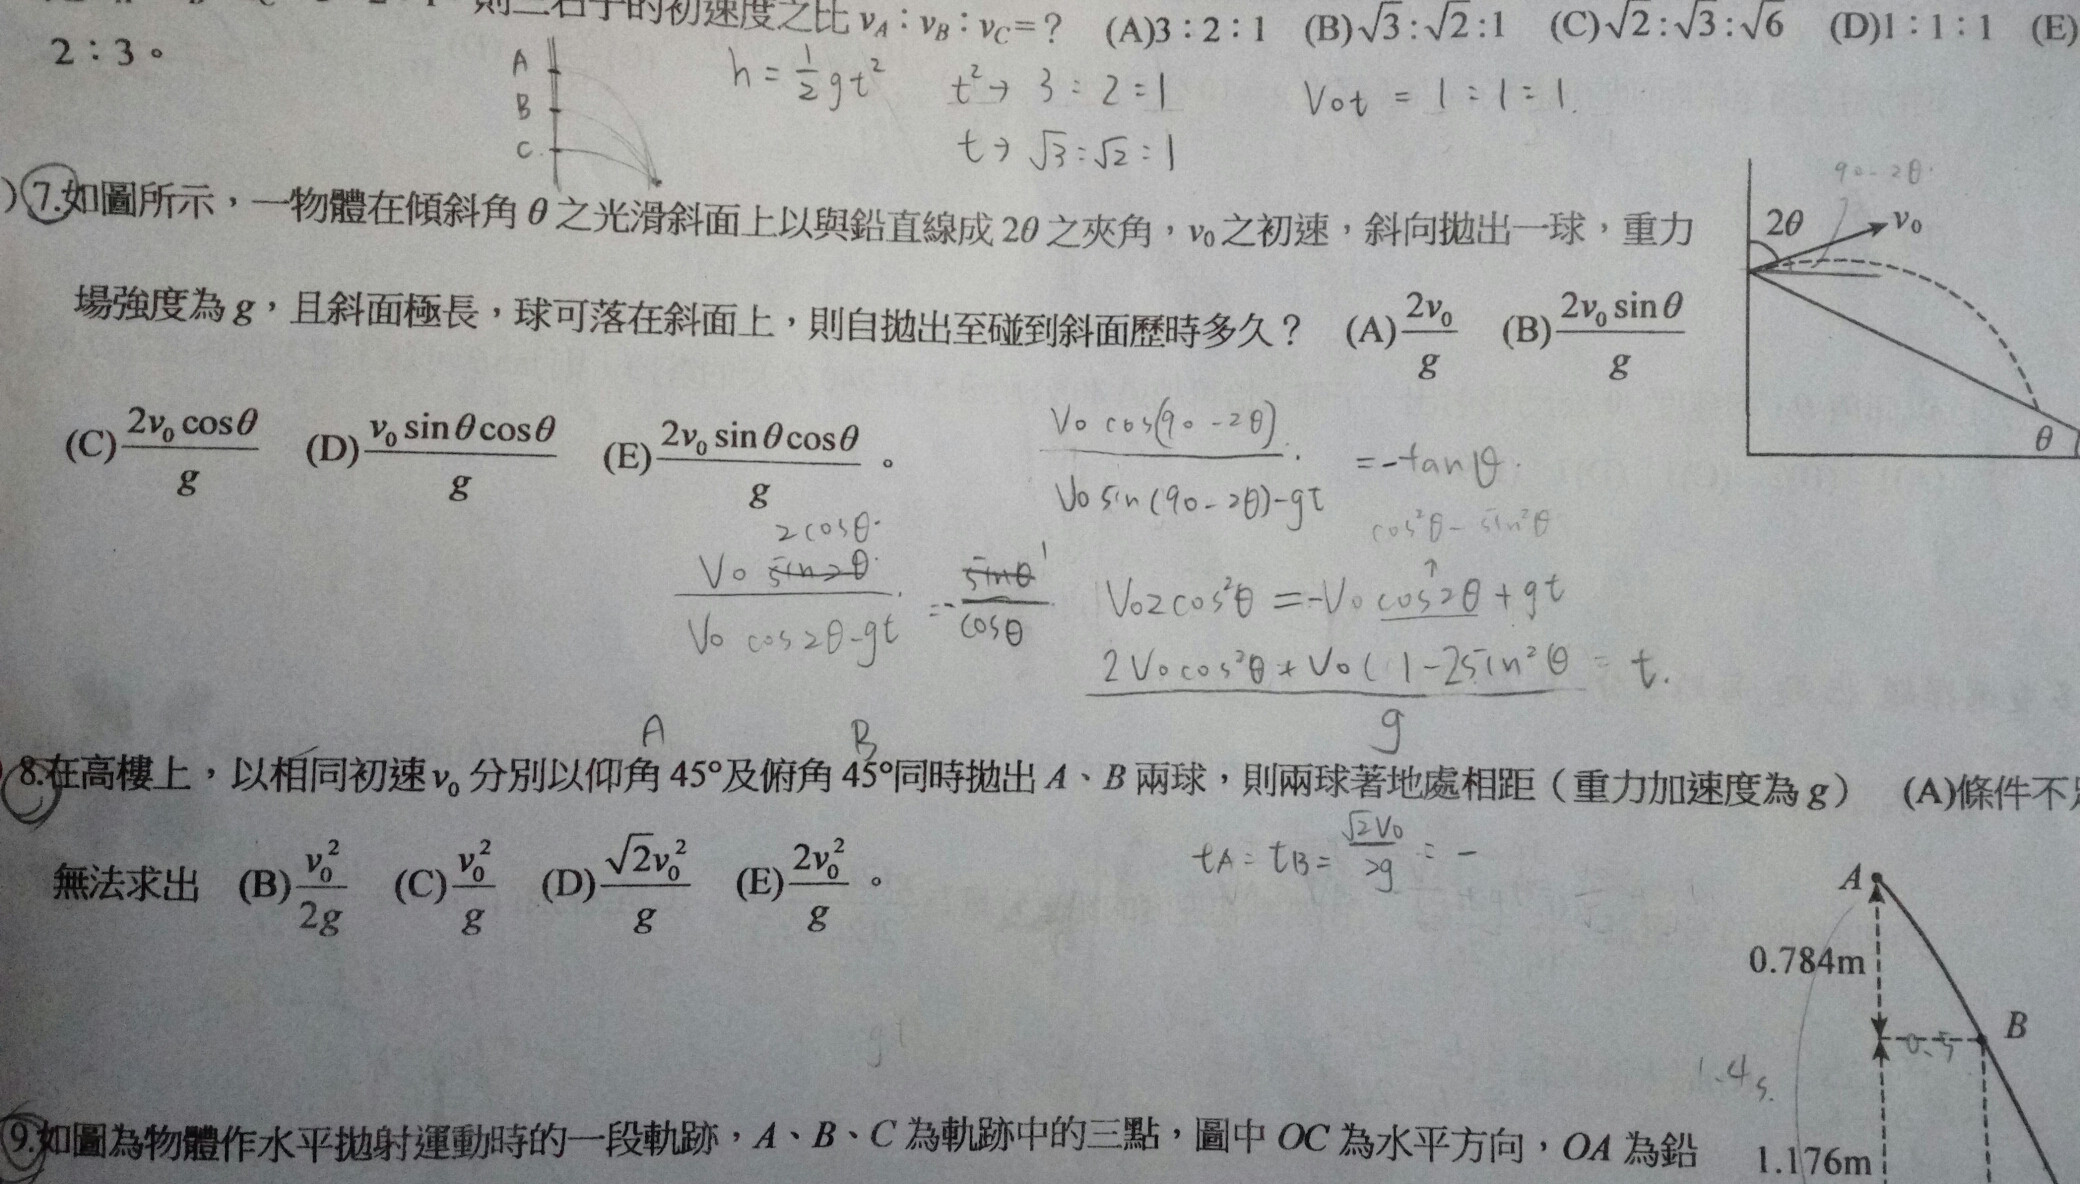 則三石子的初速度之比 vA：vB：vC=？ (A)3：2：1 (B)√3:√2:1 (C)√2:√3:√6 (D)1：1：1 (E)
2：3。
A
B
C
h = 1/2 gt² t²→ 3:2=1 V₀t = 1:1=1.
t→ √3:√2:1
)7.如圖所示，一物體在傾斜角θ之光滑斜面上以與鉛直線成2θ之夾角，v₀之初速，斜向拋出一球，重力
場強度為g，且斜面極長，球可落在斜面上，則自拋出至碰到斜面歷時多久？ (A) 2v₀/g (B) 2v₀ sinθ/g
(C) 2v₀ cosθ/g (D) v₀ sinθcosθ/g (E) 2v₀ sinθcosθ/g。
90-2θ
2θ
v₀
θ
V₀ cos(90-2θ) / V₀ sin(90-2θ)-gt = -tanθ.
cos²θ - sin²θ
2cosθ
V₀ sin2θ / V₀ cos2θ-gt = - sinθ / cosθ
1
V₀2cos²θ = -V₀ cos2θ + gt
2V₀cos²θ + V₀(1-2sin²θ / g = t.
A B
8.在高樓上，以相同初速v₀分別以仰角45°及俯角45°同時拋出A、B兩球，則兩球著地處相距（重力加速度為g） (A)條件不足
無法求出 (B) v₀²/2g (C) v₀²/g (D) √2v₀²/g (E) 2v₀²/g。
tA = tB = √2V₀/2g = -
A
0.784m
B
0.5
1.4s.
1.176m
gt
9.如圖為物體作水平拋射運動時的一段軌跡，A、B、C為軌跡中的三點，圖中OC為水平方向，OA為鉛